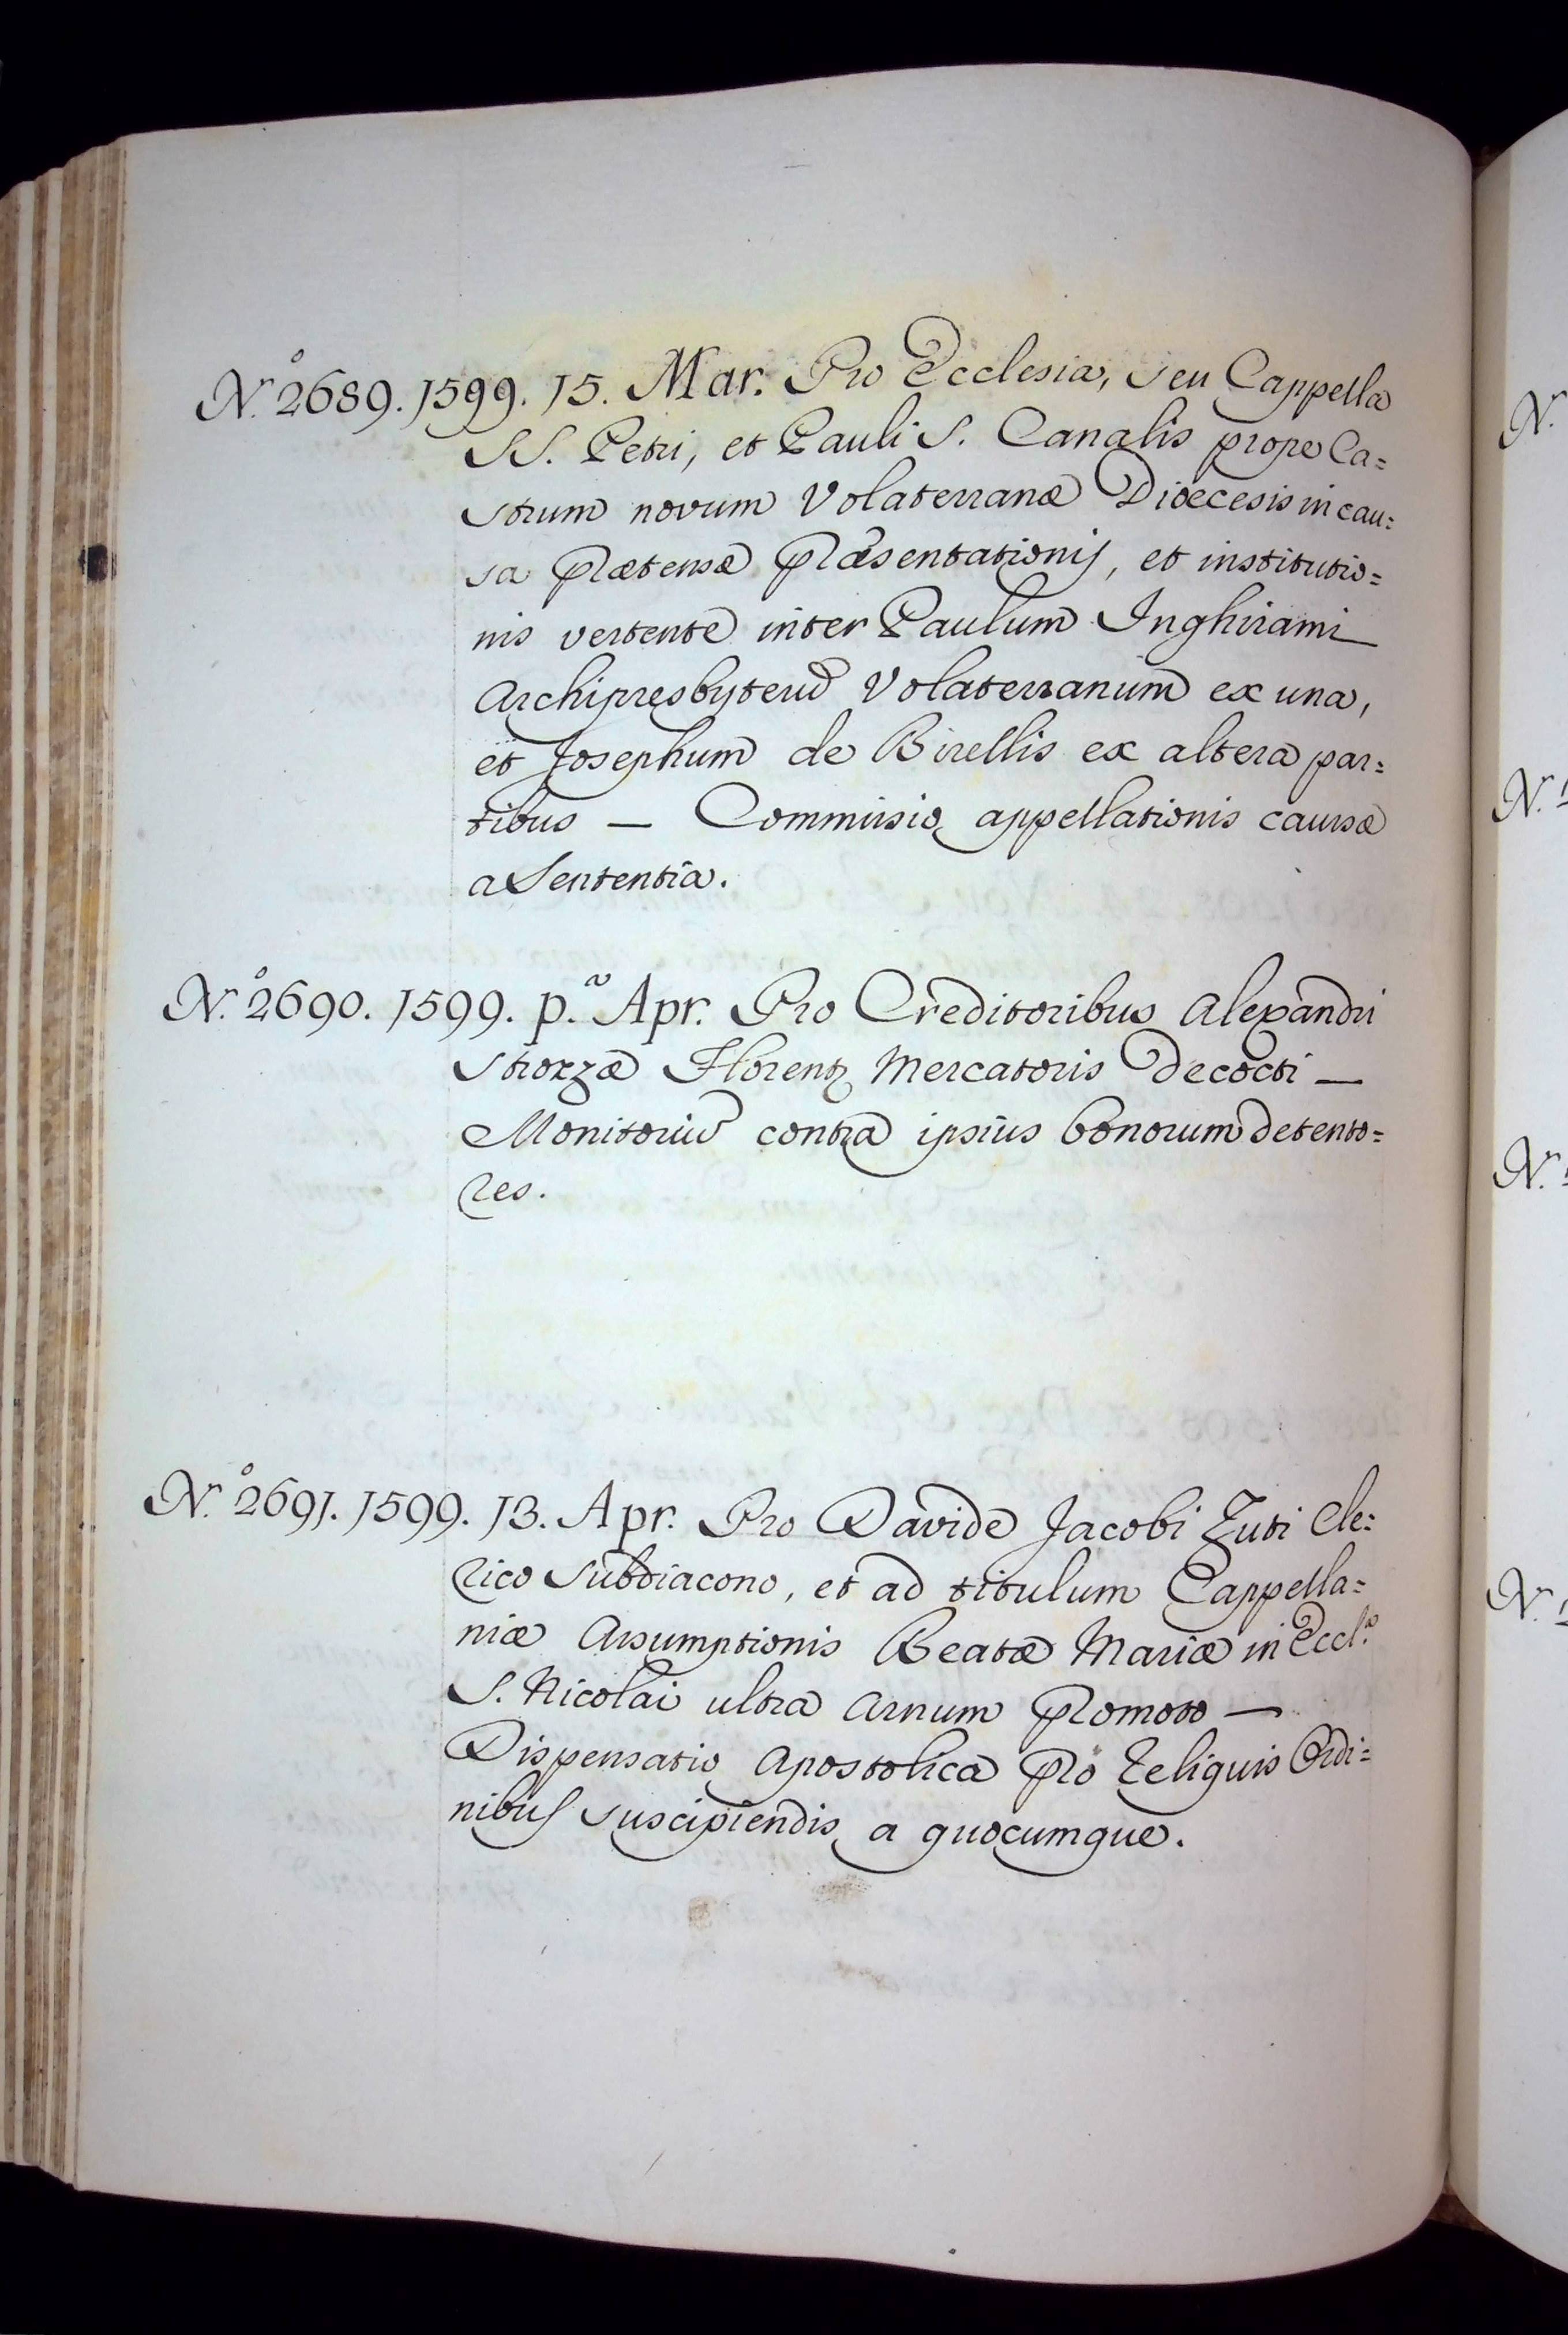 N.º 2689. 1599. 15. Mar. Pro Ecclesia, seu Cappella
SS. Petri, et Pauli S. Canalis prope Ca=
strum novum Volaterranæ Diœcesis in cau=
sa prætensæ præsentationis, et institutio=
nis vertente inter Paulum Inghirami
Archipresbyterũ Volaterranum ex una,
et Josephum de Birellis ex altera par=
tibus — Commissio appellationis causæ
a Sententia.
N.º 2690. 1599. p.ª Apr. Pro Creditoribus Alexandri
Strozzæ Florent; Mercatoris decocti —
Monitoriũ contra ipsius bonorum detento=
res.
N.º 2691. 1599. 13. Apr. Pro Davide Jacobi Zuti Cle=
rico Subdiacono, et ad titulum Cappella=
niæ Assumptionis Beatæ Mariæ in Eccl.ª
S. Nicolai ultra Arnum promoto —
Dispensatio Apostolica pro reliquis Ordi=
nibus suscipiendis a quocumque.
N.
N.º
N.º
N.º